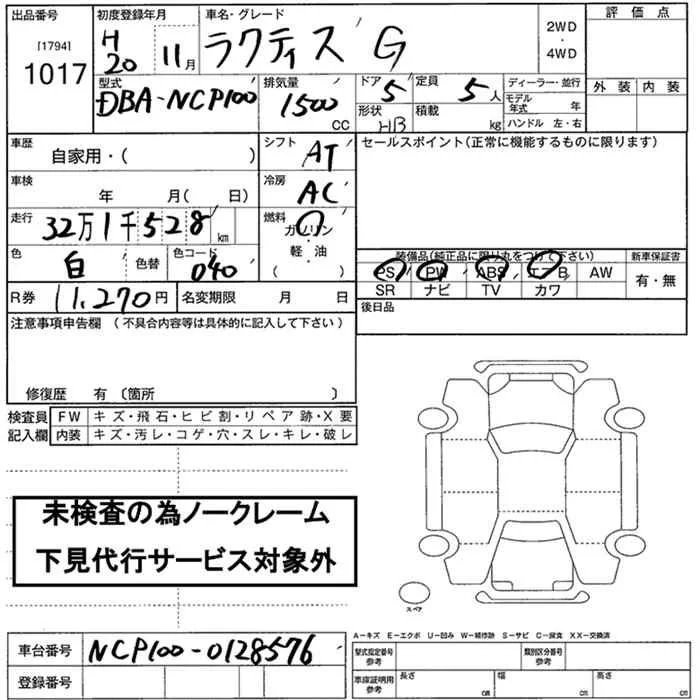 出品番号 初度登録年月 車名・グレード 評価点
[1794] H 20 11月 ラクティス G 2WD
1017 ・
4WD
型式 排気量 ドア 定員 ディーラー・並行 外装 内装
DBA-NCP100 1500 CC 5 5人 モデル年式 年
形状 HB 積載 kg ハンドル 左・右
車歴 シフト セールスポイント(正常に機能するものに限ります)
自家用・( ) AT
車検 冷房
年 月( 日) AC
走行 燃料
32万1千528 km ガソリン・軽・油
色 色コード 装備品(純正品に限り丸をつけて下さい) 新車保証書
白 色替 040 PS PW ABS エアB AW 有・無
SR ナビ TV カワ
R券 11,270円 名変期限 月 日 後日品
注意事項申告欄(不具合内容等は具体的に記入して下さい)
修復歴 有 〔箇所 〕
検査員 FW キズ・飛石・ヒビ割・リペア跡・X要
記入欄 内装 キズ・汚レ・コゲ・穴・スレ・キレ・破レ
未検査の為ノークレーム
下見代行サービス対象外
スペア
A-キズ E-エクボ U-凹み W-補修跡 S-サビ C-腐食 XX-交換済
車台番号 NCP100-0128576 型式指定番号 参考 類別区分番号 参考
登録番号 車庫証明用 参考 長さ cm 幅 cm 高さ cm